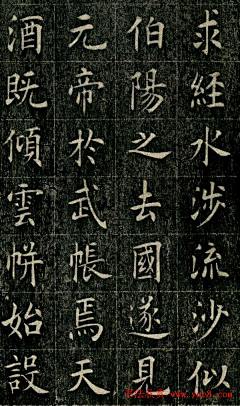 求經水涉流沙似
伯陽之去國遂身
元帝於武帳焉天
酒既傾雲帡始設